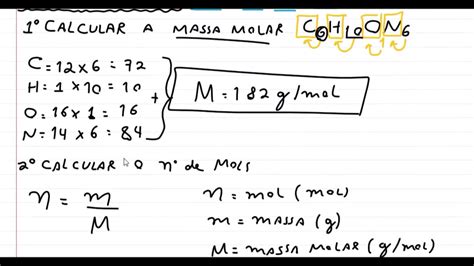 1º CALCULAR A MASSA MOLAR C6H10ON6
C = 12 x 6 = 72
H = 1 x 10 = 10
O = 16 x 1 = 16
N = 14 x 6 = 84
+
M = 182 g/mol
2º CALCULAR O nº de MOLS
n = m / M
n = mol (mol)
m = MASSA (g)
M = MASSA MOLAR (g/mol)